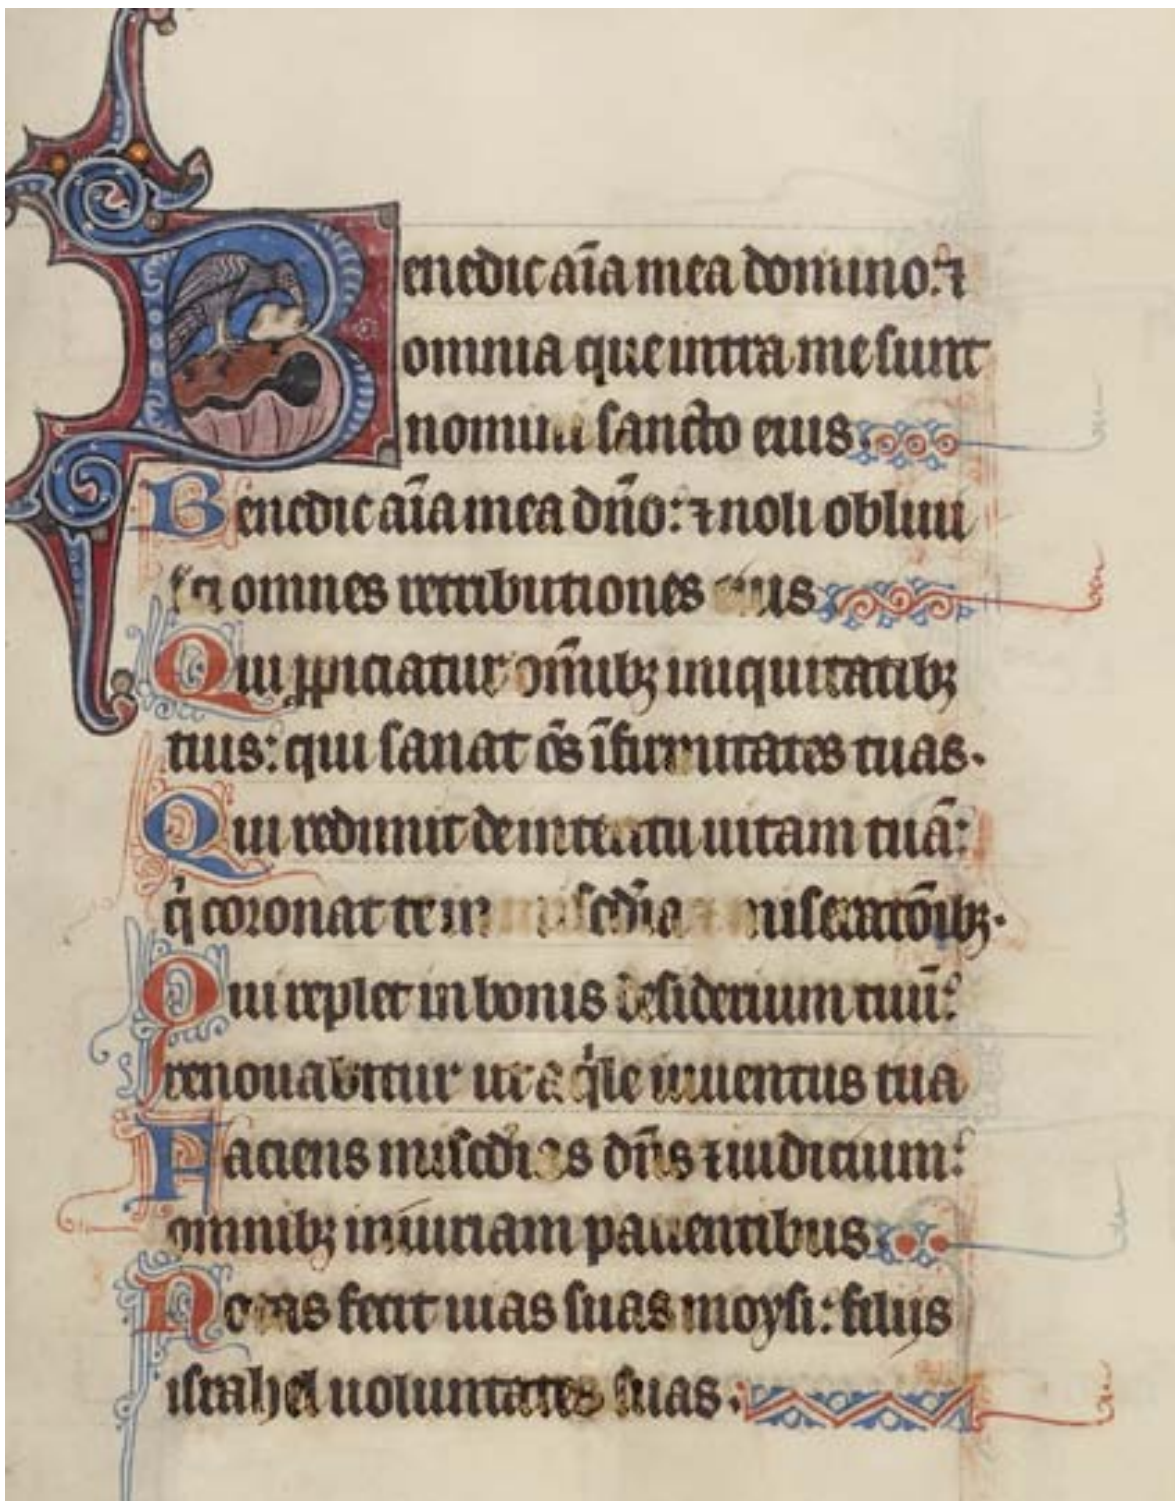 Benedic aīa mea domino: ⁊
omnia que intra me sunt
nomini sancto eius.
Benedic aīa mea dn̄o: ⁊ noli obliui
sci omnes retributiones eius
Qui ꝓpiciatur om̄ibꝫ iniquitatibꝫ
tuis: qui sanat om̄s īfirmitates tuas.
Qui redimit de interitu uitam tuā:
q̇ coronat te in mis̄cdia ⁊ miseratōibꝫ.
Qui replet in bonis desiderium tuū:
renouabitur ut aq̇le iuuentus tua
Faciens mis̄cdias dn̄s ⁊ iudicium:
omnibꝫ iniuriam patientibus
Notas fecit uias suas moysi: filijs
israhel uoluntates suas.